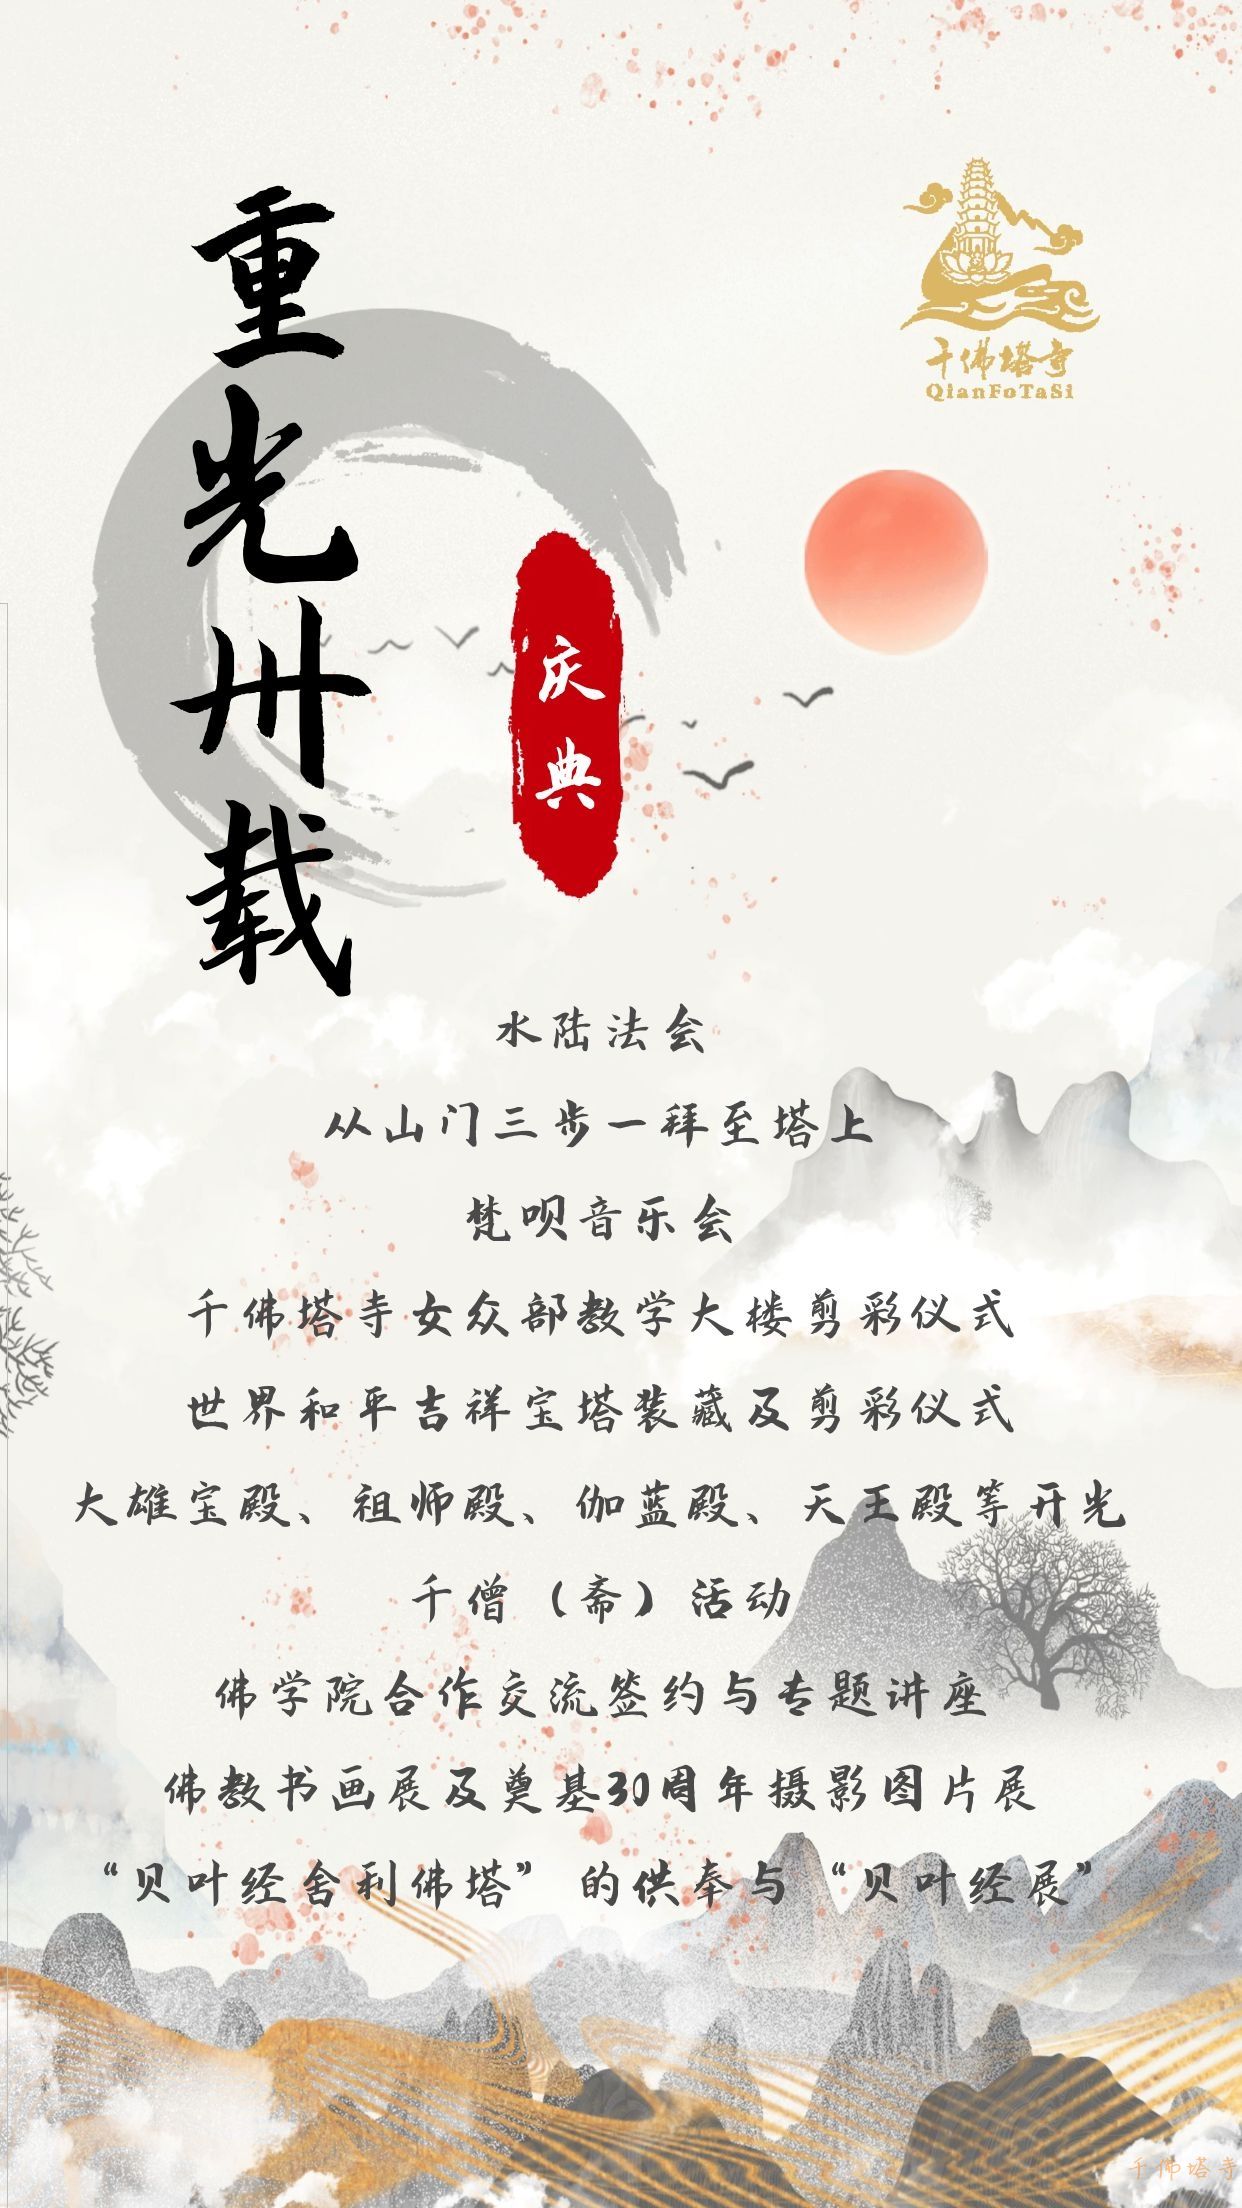 重光卅载
庆典
千佛塔寺
QianFoTaSi
水陆法会
从山门三步一拜至塔上
梵呗音乐会
千佛塔寺女众部教学大楼剪彩仪式
世界和平吉祥宝塔装藏及剪彩仪式
大雄宝殿、祖师殿、伽蓝殿、天王殿等开光
千僧（斋）活动
佛学院合作交流签约与专题讲座
佛教书画展及奠基30周年摄影图片展
“贝叶经舍利佛塔”的供奉与“贝叶经展”
千佛塔寺